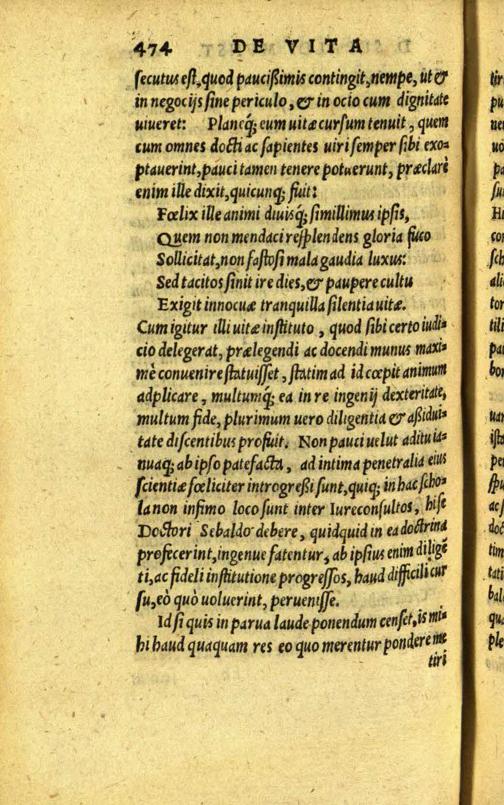 474 DE VITA
secutus est, quod paucißimis contingit, nempe, ut &
in negocijs sine periculo, & in ocio cum dignitate
uiueret: Planeq́; eum uitæ cursum tenuit, quem
cum omnes docti ac sapientes uiri semper sibi exo-
ptauerint, pauci tamen tenere potuerunt, præclarè
enim ille dixit, quicunq; fuit:
Fœlix ille animi diuisq́; simillimus ipsis,
Quem non mendaci resplendens gloria fuco
Sollicitat, non fastosi mala gaudia luxus:
Sed tacitos sinit ire dies, & paupere cultu
Exigit innocuæ tranquilla silentia uitæ.
Cum igitur illi uitæ instituto, quod sibi certo iudi-
cio delegerat, prælegendi ac docendi munus maxi-
mè conuenire statuisset, statim ad id cœpit animum
adplicare, multumq́; ea in re ingenij dexteritate,
multum fide, plurimum uero diligentia & aßidui-
tate discentibus profuit. Non pauci uelut aditu ia-
nuaq; ab ipso patefacta, ad intima penetralia eius
scientiæ fœliciter introgreßi sunt, quiq; in hac scho-
la non infimo loco sunt inter Iureconsultos, hi se
Doctori Sebaldo debere, quidquid in ea doctrina
profecerint, ingenue fatentur, ab ipsius enim diligẽ
ti, ac fideli institutione progressos, haud difficili cur
su, eò quò uoluerint, peruenisse.
Id si quis in parua laude ponendum censet, is mi-
hi haud quaquam res eo quo merentur pondere me
tiri